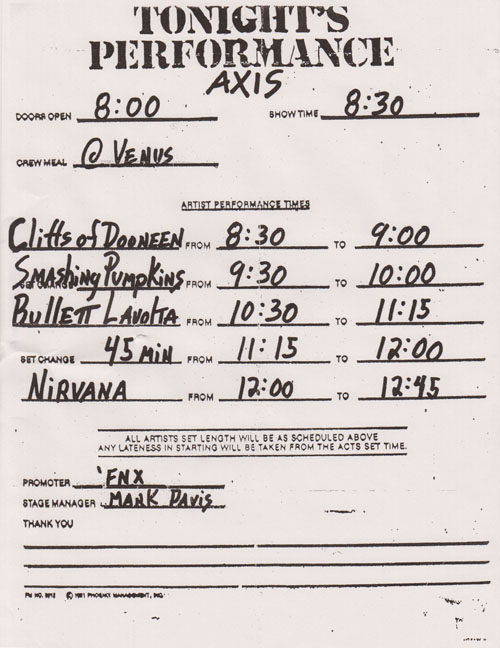 TONIGHT'S
PERFORMANCE
AXIS
DOORS OPEN 8:00 SHOW TIME 8:30
CREW MEAL @ VENUS
ARTIST PERFORMANCE TIMES
Cliffs of DOONEEN FROM 8:30 TO 9:00
SMASHING PUMPKINS FROM 9:30 TO 10:00
BULLETT LAVOLTA FROM 10:30 TO 11:15
SET CHANGE 45 MIN FROM 11:15 TO 12:00
NIRVANA FROM 12:00 TO 12:45
ALL ARTISTS SET LENGTH WILL BE AS SCHEDULED ABOVE
ANY LATENESS IN STARTING WILL BE TAKEN FROM THE ACTS SET TIME.
PROMOTER 'FNX
STAGE MANAGER MARK DAVIS
THANK YOU
© 1991 PHOENIX MANAGEMENT, INC.